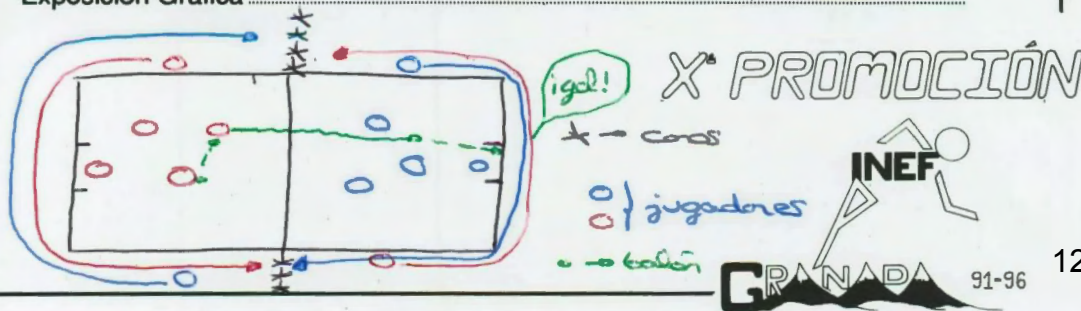 Exposición Gráfica
¡gol!
Xª PROMOCIÓN
* → conos
} jugadores
→ balón
INEF
GRANADA 91-96
12